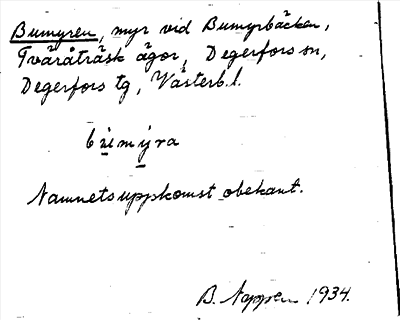 Bumyren, myr vid Bumyrbäcken,
Tväråträsk ägor, Degerfors sn,
Degerfors tg, Västerb.l.
bu̲m̀y̲ra
Namnets uppkomst obekant.
B. 1934.